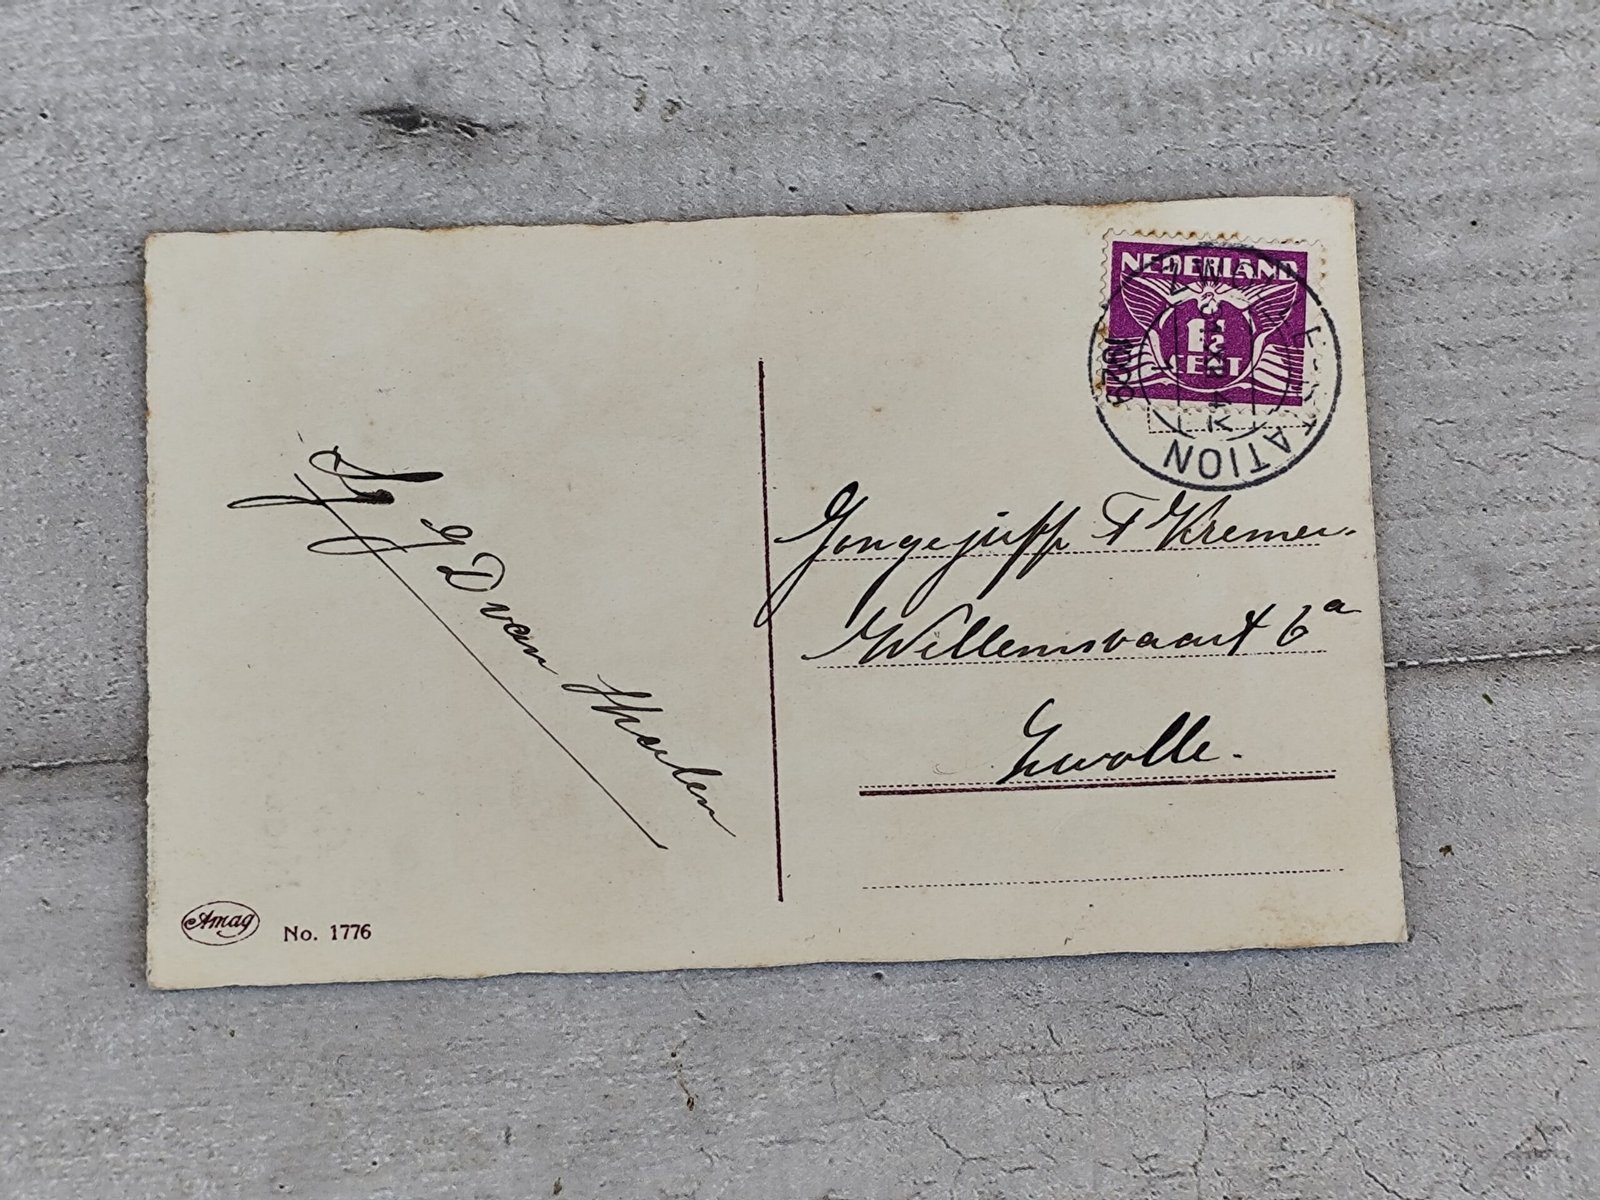 NEDERLAND
1½
CENT
STATION
1928
G D van Thalen
Jongejuff F Kremer.
Willemsvaart 6a
Zwolle.
Amag
No. 1776